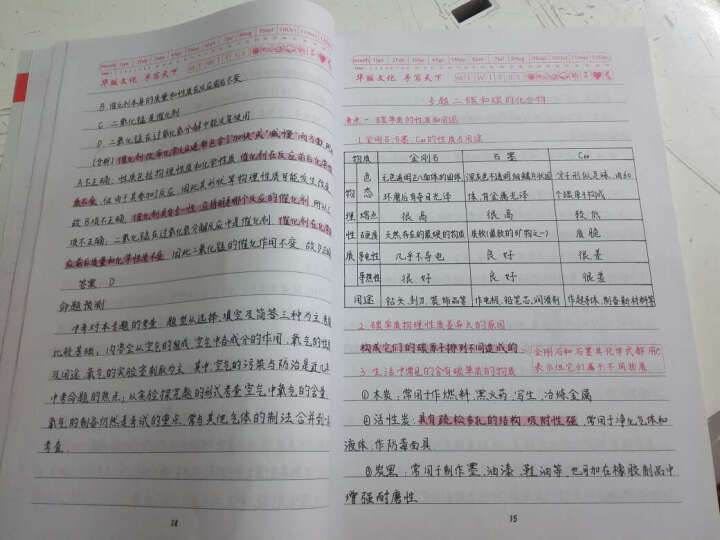 华版文化 手写天下
B. 催化剂本身的质量和性质在反应前后不变
C. 二氧化锰是催化剂
D. 二氧化锰在过氧化氢分解中能反复使用
A不正确。性质包括物理性质和化学性质 催化剂在反应前后化学性
质不变
故B项不正确。
项不正确。二氧化锰在过氧化氢分解反应中是催化剂。催化剂在化学反
应前后质量和化学性质不变。因此二氧化锰的催化作用不变。故D正确
答案: D
命题预测
中考对本专题的考查, 题型从选择、填空及简答三种为主,
比较基础; 内容会从空气的组成、空气中各成分的作用、氧气的性
及用途、氧气的实验室制取为主。其中,空气的污染与防治是近几年
中考命题的热点; 从实验探究题的形式考查空气中氧气的含量
氧气的制备仍然是考试的重点, 常与其他气体的制法合并到一
考查。
14
华版文化 手写天下
专题二 碳和碳的化合物
考点一 碳单质的性质和用途
1.金刚石、石墨、C60的性质与用途
物质 金刚石 石墨 C60
物理性质
色态 无色透明正八面体的固体 深灰色不透明细鳞片状固 分子形似足球, 由60
体, 有金属光泽 个碳原子构成
熔点 很高 很高 较低
硬度 天然存在的最硬的物质 质软(最软的矿物之一) 质脆
导电性 几乎不导电 良好 很差
导热性 很好 良好 很差
用途 钻头、刻刀、装饰品等 作电极、铅笔芯、润滑剂
2. 碳单质物理性质差异大的原因
构成它们的碳原子排列不同造成的。
金刚石和石墨其化学式都用C
表示但它们属于不同物质
3. 生活中常见的含有碳单质的物质
① 木炭: 常用于作燃料、黑火药、写生、冶炼金属
② 活性炭: 具有疏松多孔的结构 吸附性强, 常用于净化气体和
液体, 作防毒面具
③ 炭黑: 常用于制作墨、油漆、鞋油等, 也可加在橡胶制品中
增强耐磨性
15